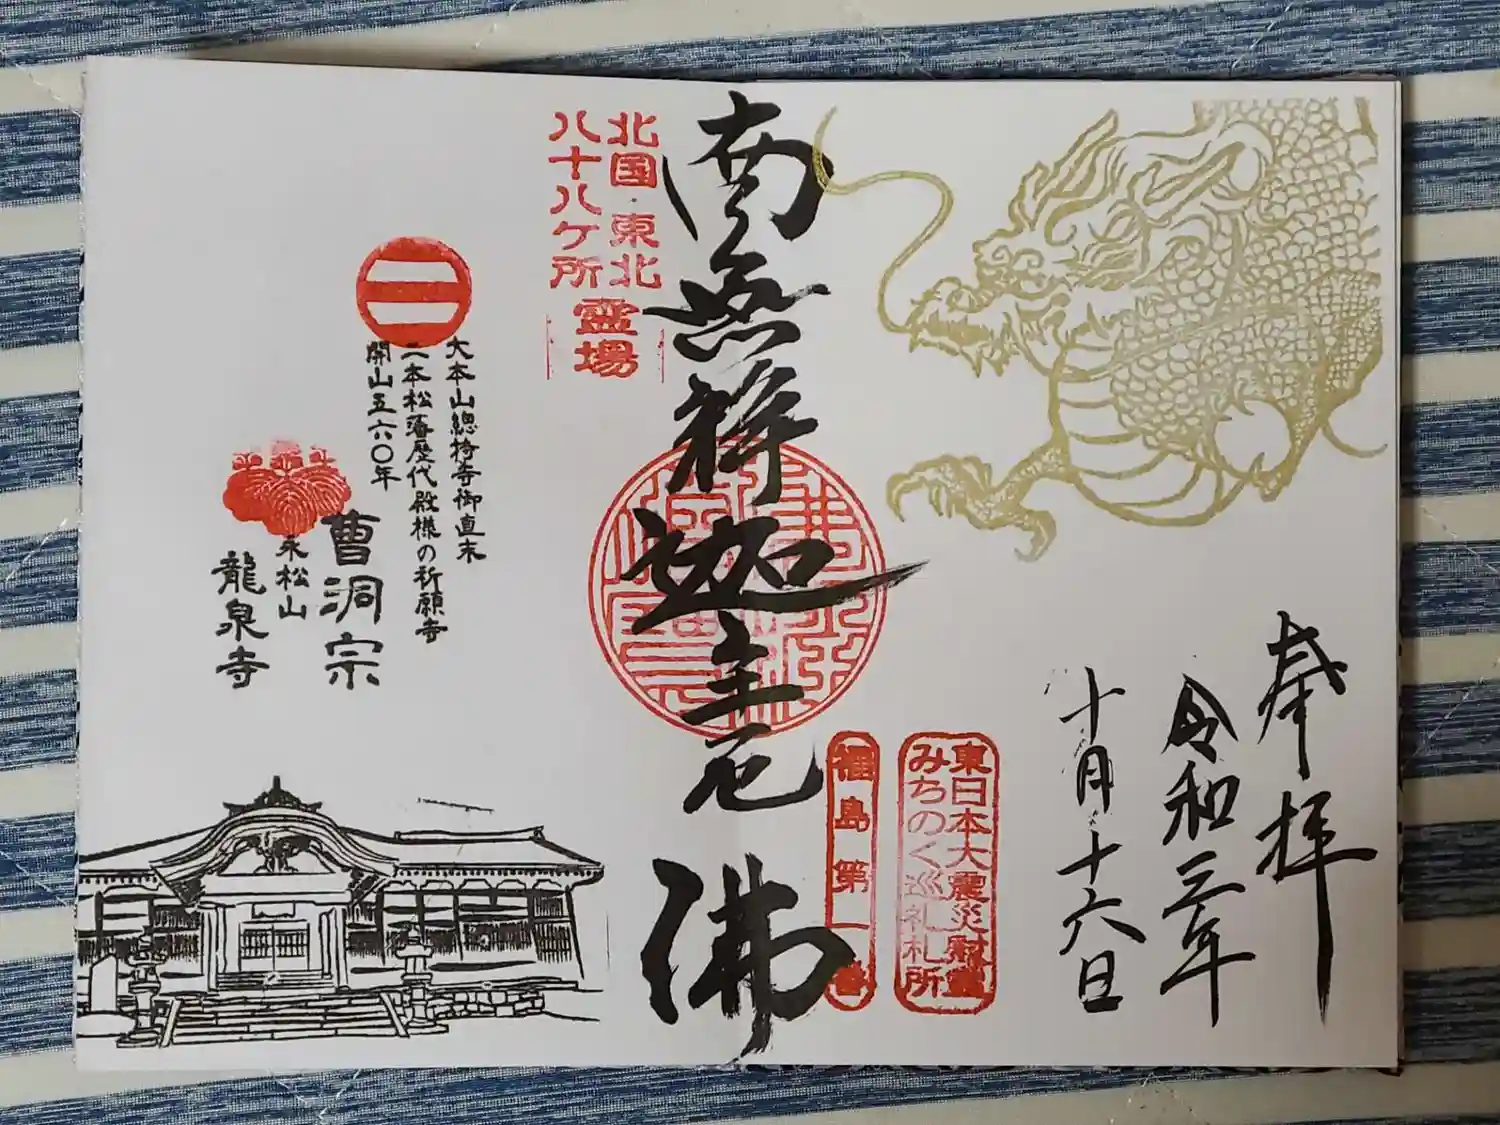 奉拝
令和三年
十月十六日
東日本大震災慰霊
みちのく巡礼札所
福島第一番
南無釋迦牟尼佛
北国・東北
八十八ケ所
霊場
大本山總持寺御直末
二本松藩歴代殿様の祈願寺
開山五六〇年
曹洞宗
永松山
龍泉寺